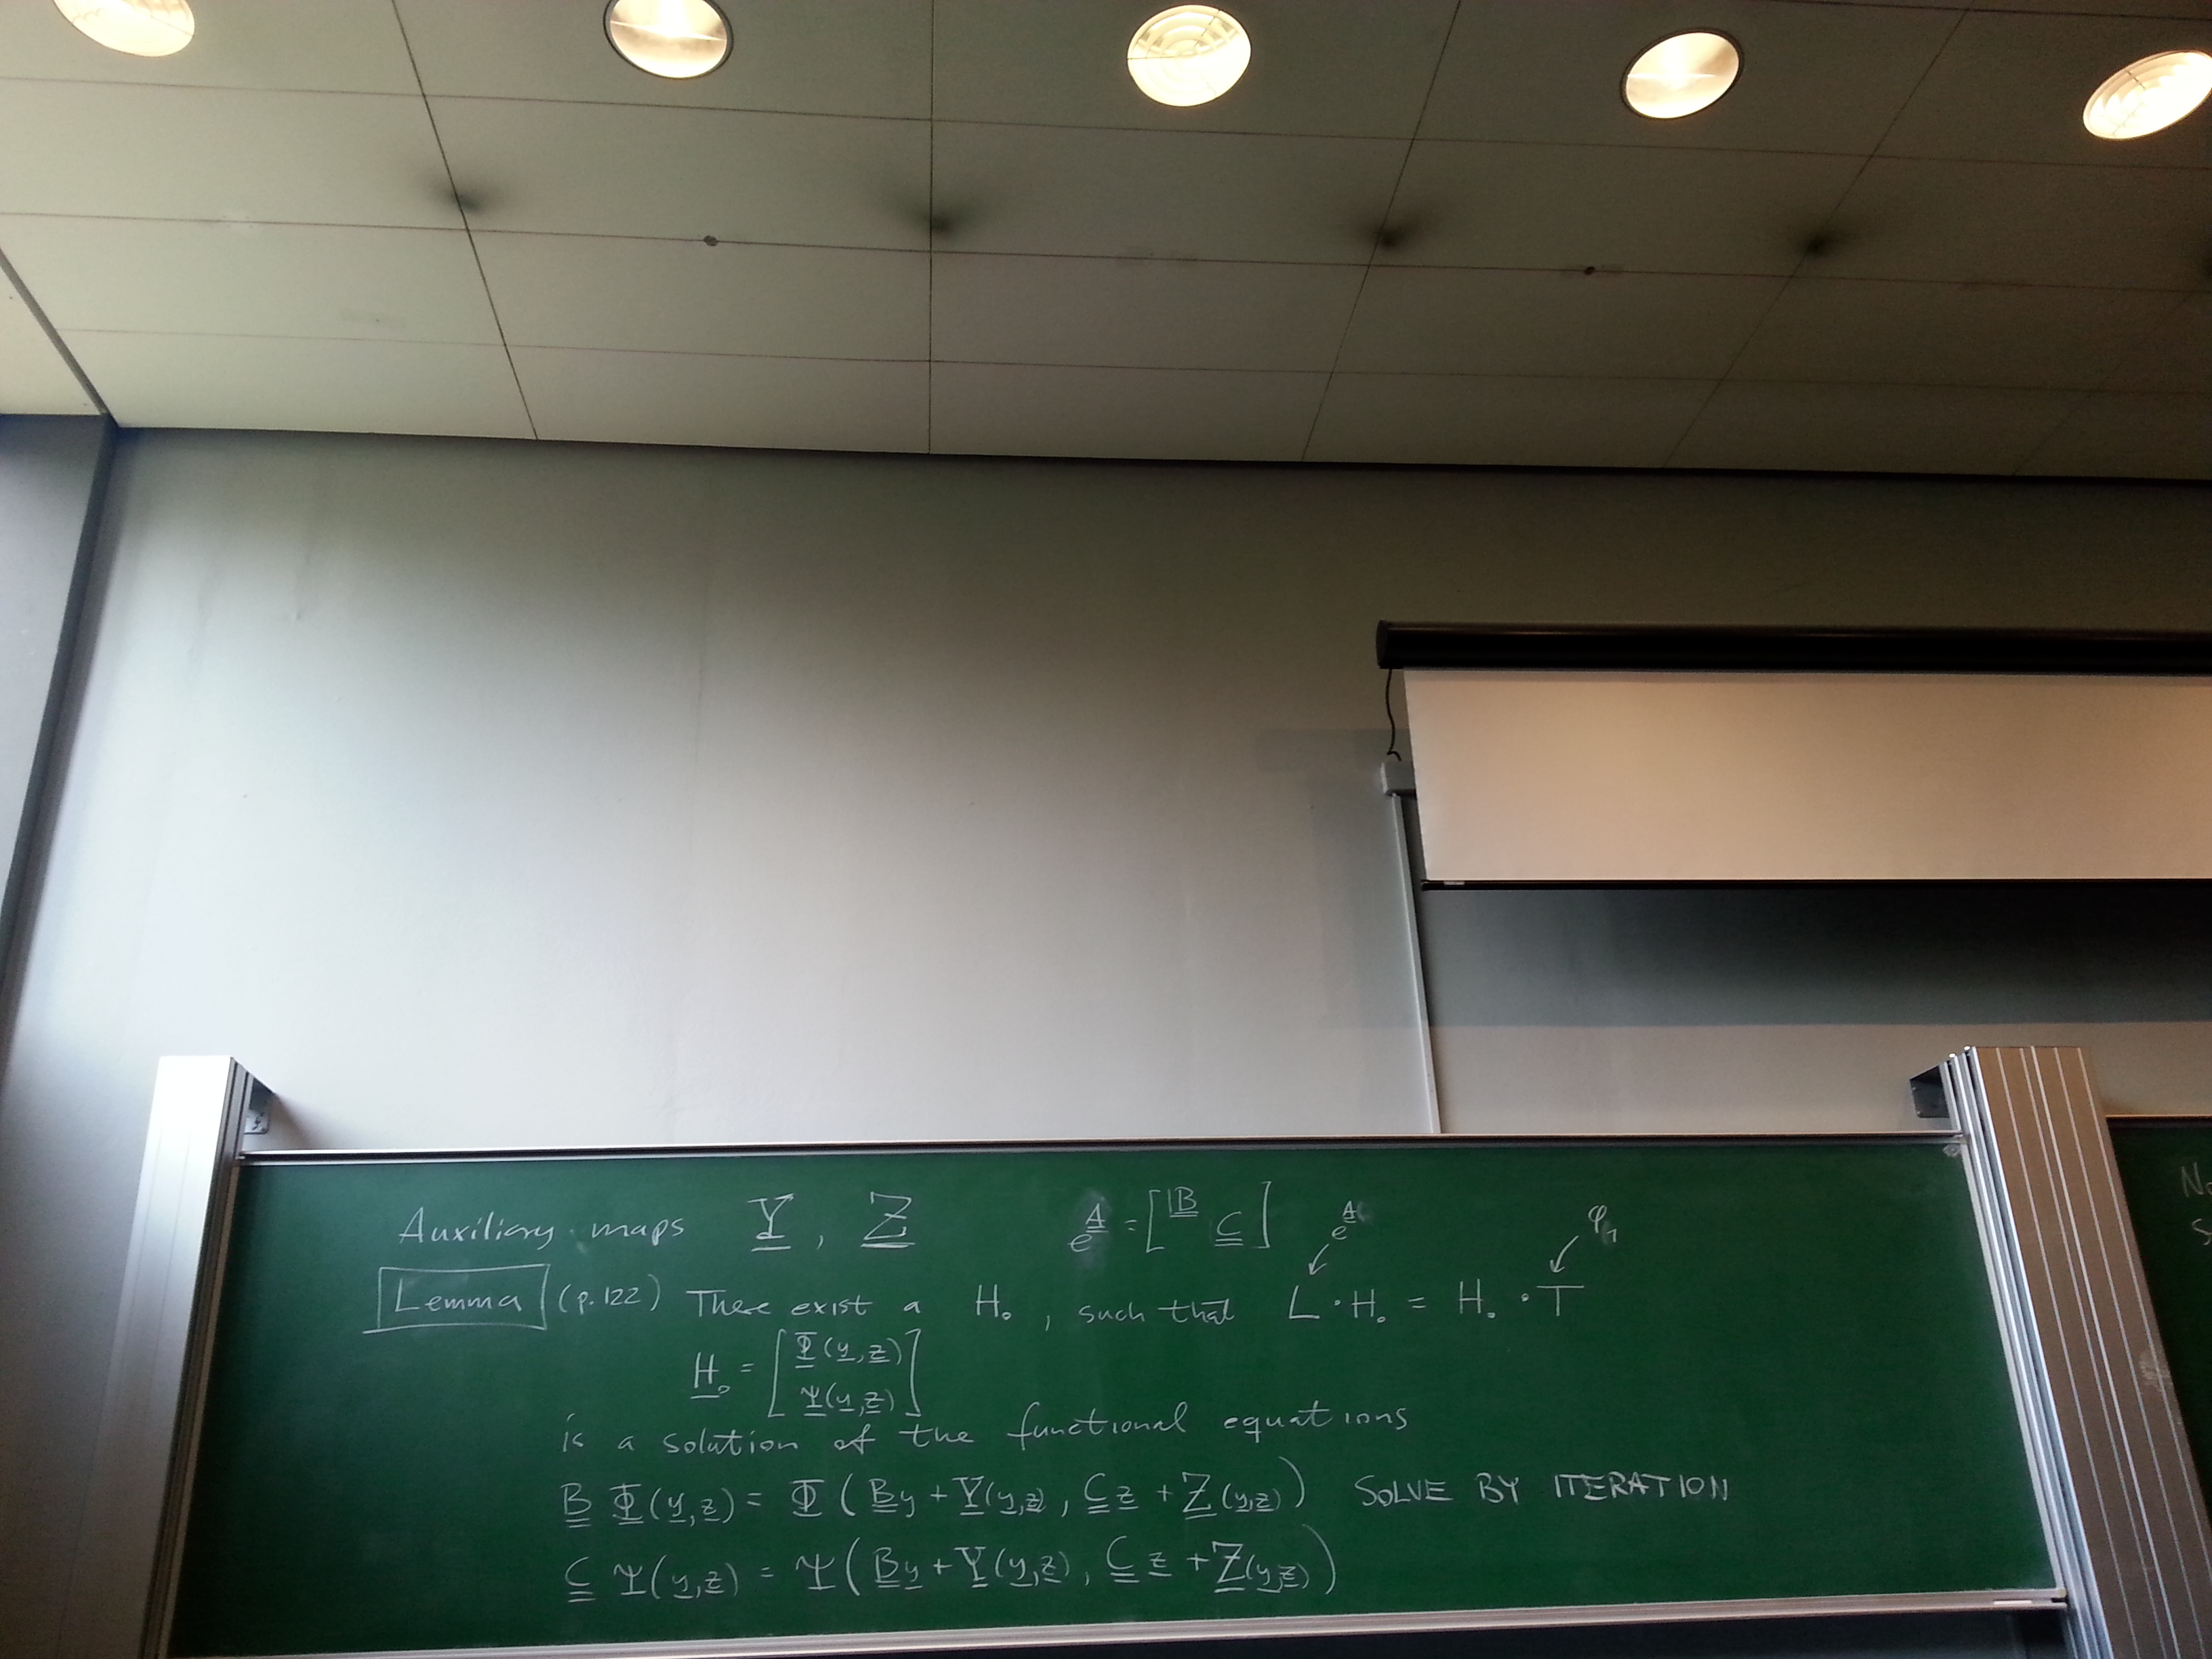 Auxiliary maps Y, Z e^A = [B C] e^A φ₁
Lemma (p.122) There exist a H₀, such that L·H₀ = H₀·T
H₀ = [Φ(y,z)
Ψ(y,z)]
is a solution of the functional equations
B Φ(y,z) = Φ(By + Y(y,z), Cz + Z(y,z)) SOLVE BY ITERATION
C Ψ(y,z) = Ψ(By + Y(y,z), Cz + Z(y,z))